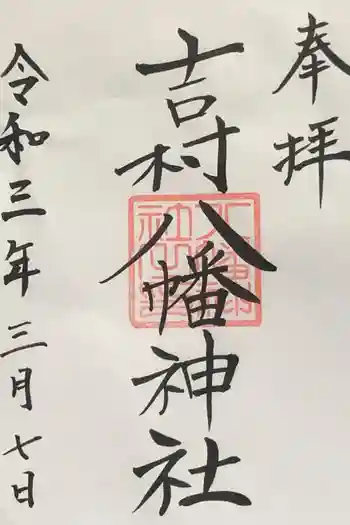 奉拝
吉村八幡神社
令和三年三月七日